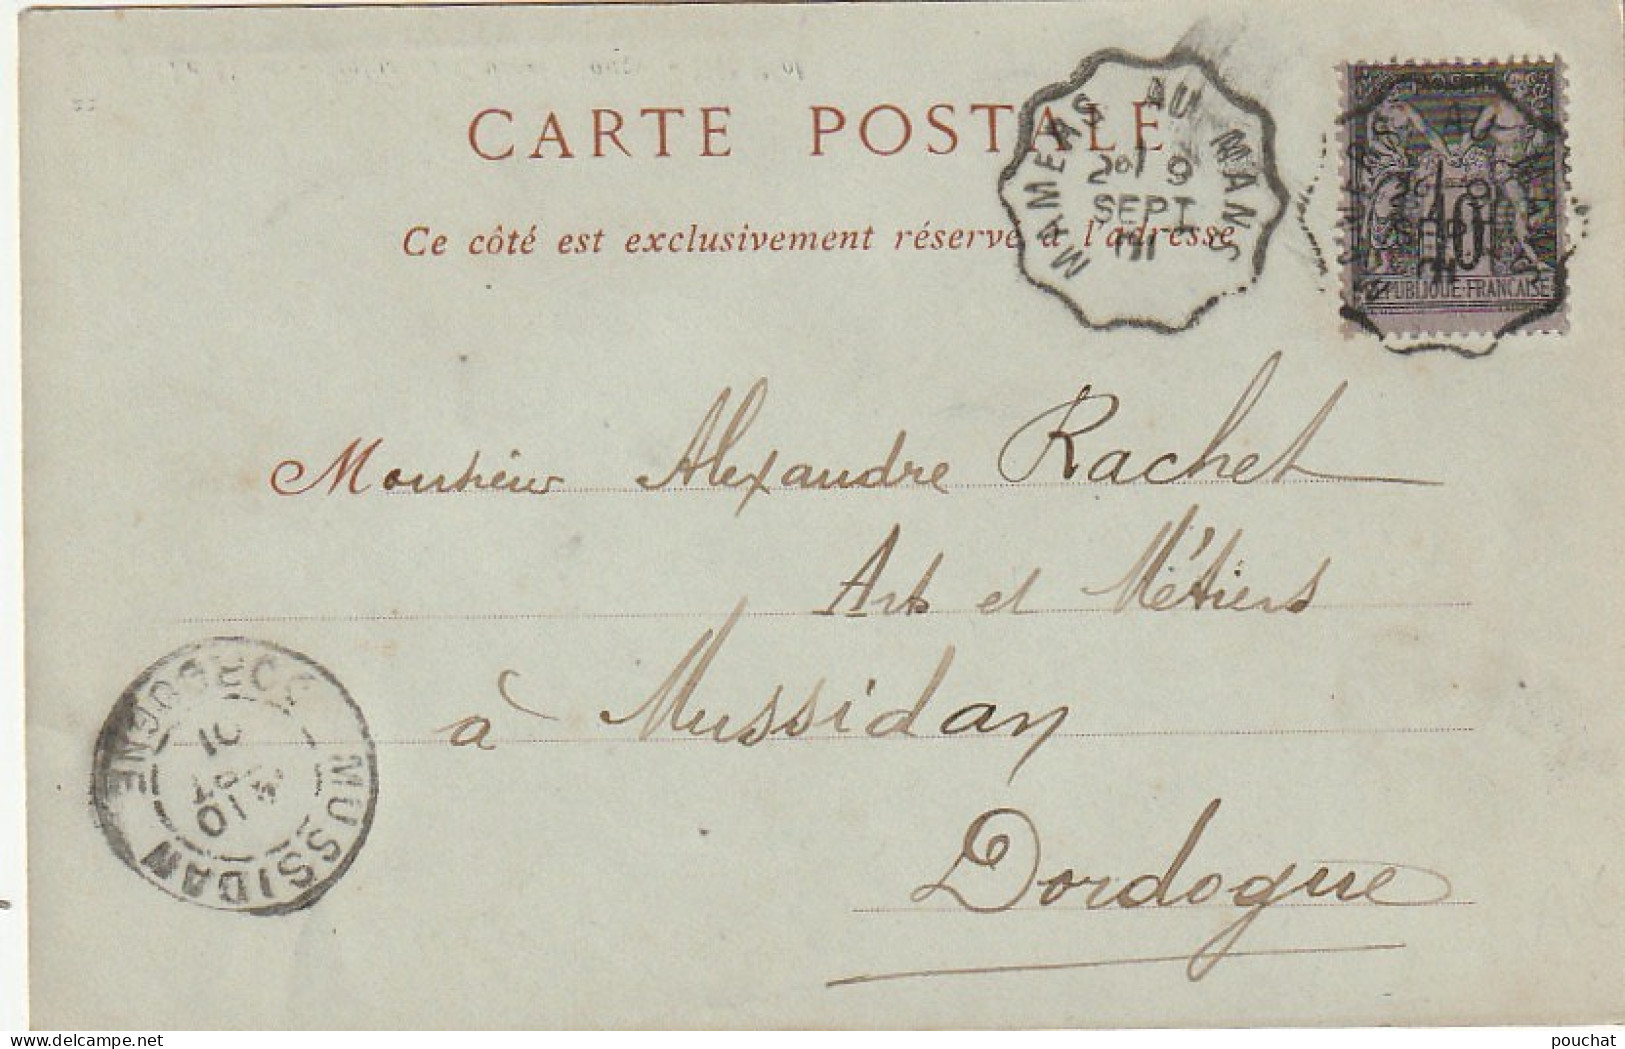 CARTE POSTALE
Ce côté est exclusivement réservé à l'adresse
MAMERS AU MANS
2º 9
SEPT
01
10
REPUBLIQUE FRANCAISE
Monsieur Alexandre Rachet
Arts et Métiers
à Mussidan
Dordogne
MUSSIDAN DORDOGNE
10
SEPT
01
delcampe.net
pouchat